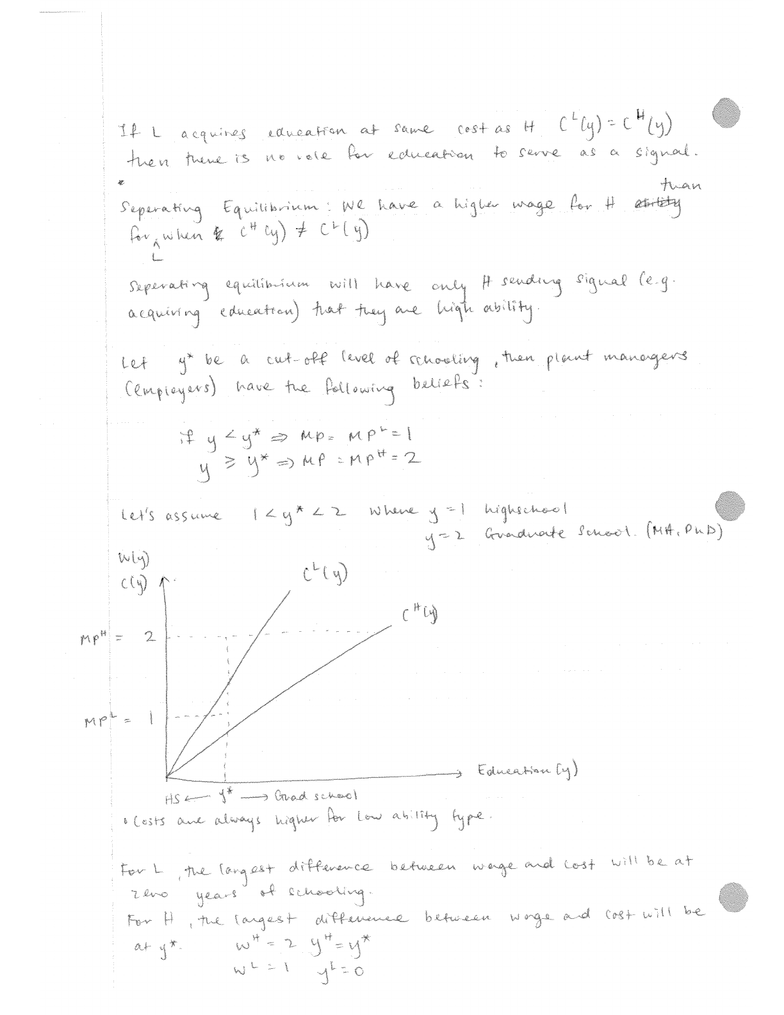 If L acquires education at same cost as H C^L(y) = C^H(y)
then there is no role for education to serve as a signal.
Seperating Equilibrium: We have a higher wage for H than
for L when C^H(y) ≠ C^L(y)
Seperating equilibrium will have only H sending signal (e.g.
acquiring education) that they are high ability.
Let y* be a cut-off level of schooling, then plant managers
(employers) have the following beliefs:
if y < y* ⇒ MP = MP^L = 1
y ≥ y* ⇒ MP = MP^H = 2
Let's assume 1 < y* < 2 where y = 1 highschool
y = 2 Graduate School. (MA, PhD)
W(y)
C(y)
C^L(y)
C^H(y)
MP^H = 2
MP^L = 1
Education (y)
HS ← y* → Grad school
• Costs are always higher for low ability type.
For L, the largest difference between wage and cost will be at
zero years of schooling.
For H, the largest difference between wage and cost will be
at y*. w^H = 2 y^H = y*
w^L = 1 y^L = 0